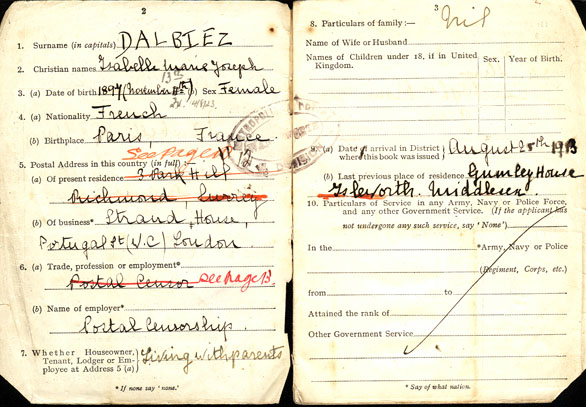 2
1. Surname (in capitals) DALBIEZ
2. Christian names Isabelle Marie Joseph
13th
3. (a) Date of birth 1897 (November (b) Sex Female
4. (a) Nationality French
(b) Birthplace Paris, France
See page
5. Postal Address in this country (in full) :—
(a) Of present residence: 3 Park Hill
Richmond, Surrey
(b) Of business* Strand, House,
Portugal St (W.C) London
6. (a) Trade, profession or employment*
Postal Censor see page 13.
(b) Name of employer*
Postal Censorship.
7. Whether Houseowner,
Tenant, Lodger or Em-
ployee at Address 5 (a)
Living with parents
* If none say 'none.'
3
8. Particulars of family :— Nil
Name of Wife or Husband
Names of Children under 18, if in United Kingdom. Sex. Year of Birth.
9. (a) Date of arrival in District
where this book was issued
August 25th 1913
(b) Last previous place of residence Gumley House
Isleworth. Middlesex.
10. Particulars of Service in any Army, Navy or Police Force,
and any other Government Service. (If the applicant has
not undergone any such service, say 'None')
In the *Army, Navy or Police
(Regiment, Corps, etc.)
from to
Attained the rank of
Other Government Service
* Say of what nation.